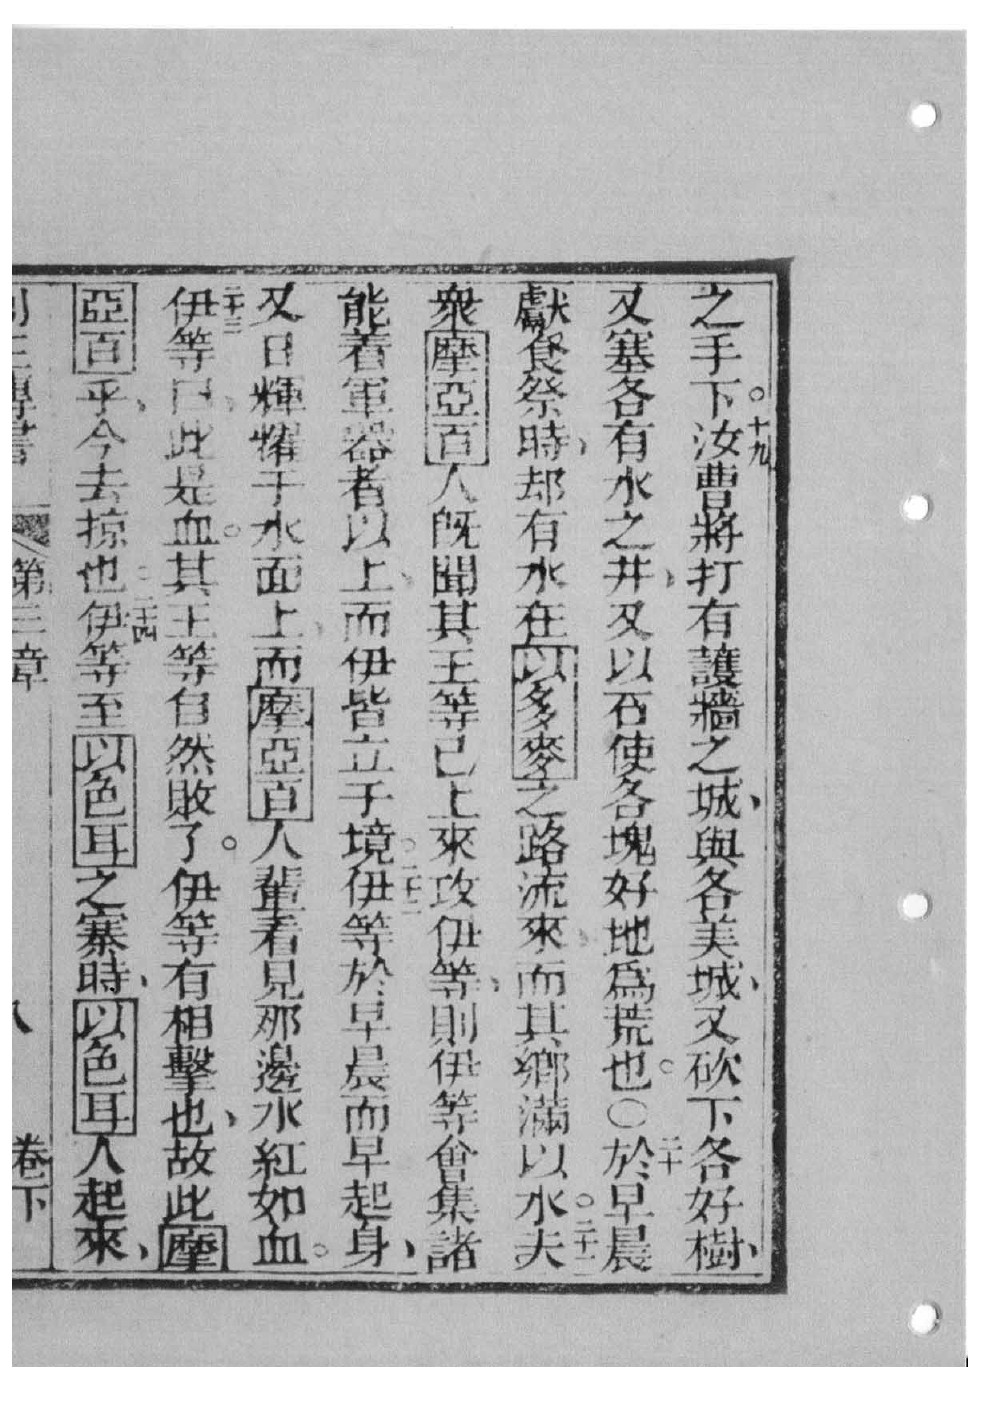 之手下。十九汝曹將打有護牆之城、與各美城、又砍下各好樹、
又塞各有水之井、又以石使各塊好地為荒也。〇二十於早晨
獻食祭時、却有水在以多麥之路流來、而其鄉滿以水。二十一夫
衆摩亞百人既聞其王等已上來攻伊等、則伊等會集諸
能着軍器者以上、而伊皆立于境。二十二伊等於早晨而早起身、
又日輝耀于水面上、而摩亞百人輩看見那邊水紅如血。
二十三伊等曰、此是血。其王等自然敗了。伊等有相擊也、故此摩
亞百乎、今去掠也。二十四伊等至以色耳之寨時、以色耳人起來、
列王傳書 第三章 八 卷下